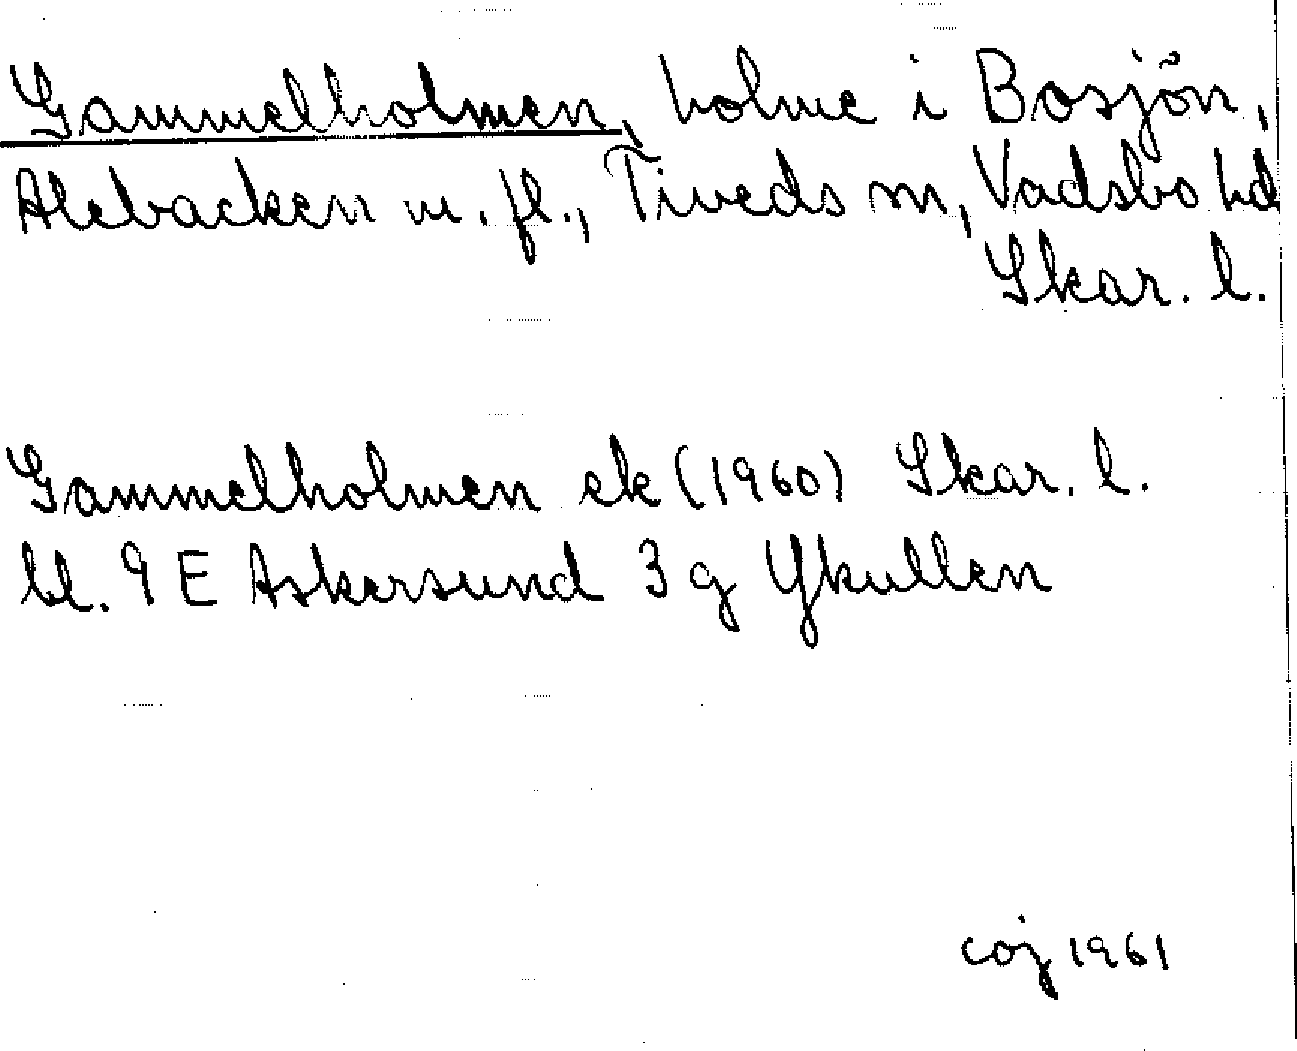 Gammelholmen, holme i Bosjön,
Alebacken m. fl., Tiveds sn, Vadsbo hd
Skar. l.
Gammelholmen ek (1960) Skar. l.
bl. 9 E Askersund 3 g Ykullen
coj 1961